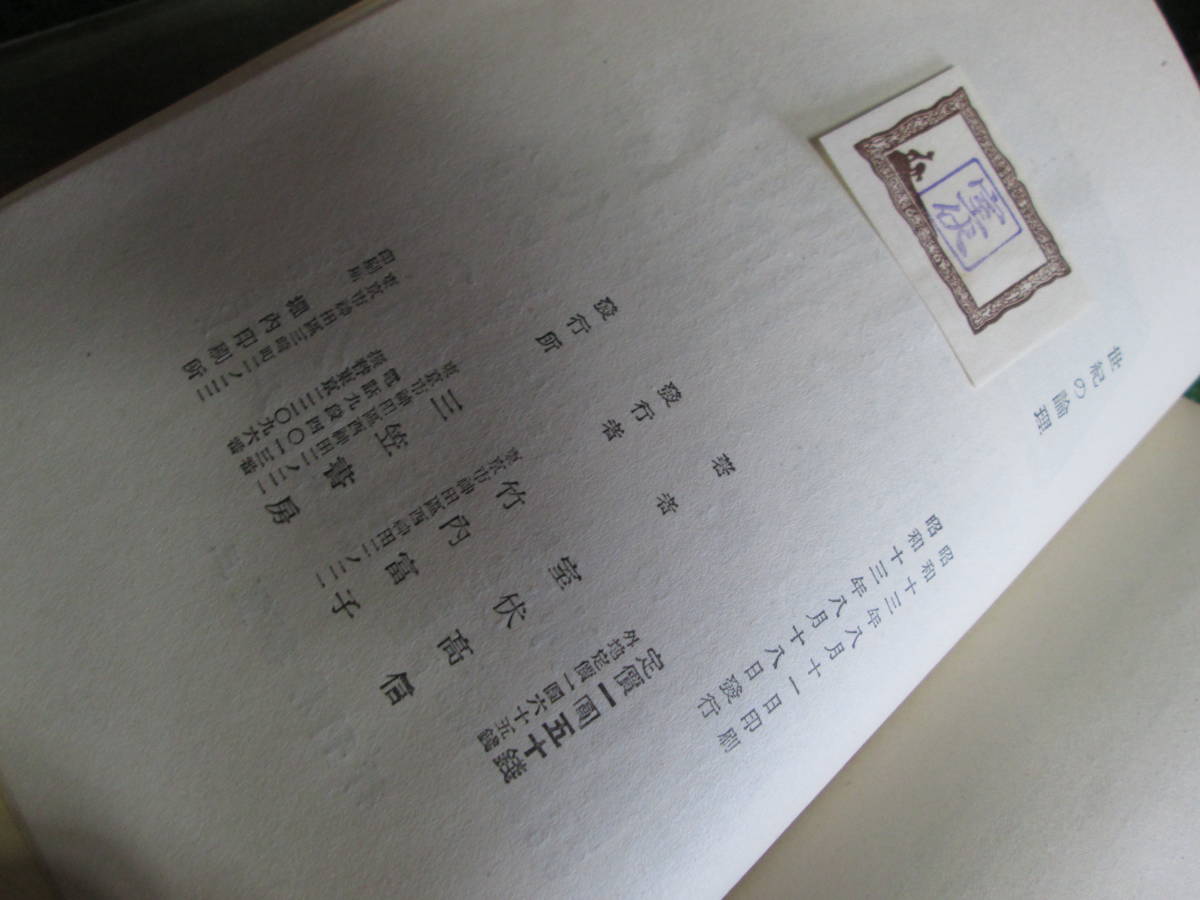 室伏
世紀の論理
昭和十三年八月十一日印刷
昭和十三年八月十八日發行
定價一圓五十錢
外地定價一圓六十五錢
著者 室伏高信
發行者 竹内富子
東京市神田區西神田二ノ二一
發行所 三笠書房
東京市神田區西神田二ノ二一
電話九段四〇一三番
振替東京二二〇九六番
印刷所 堀内印刷所
東京市神田區三崎町二ノ二二